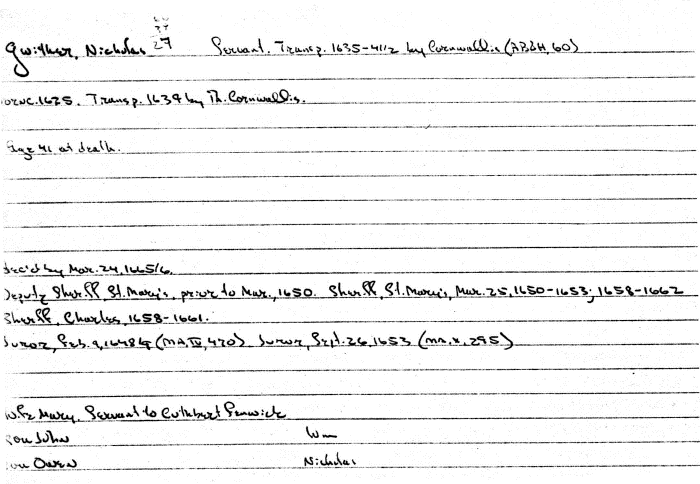 Gwither, Nicholas 27 Servant. Transp. 1635-41/2 by Cornwallis (AB&H, 60)
c.1625. Transp. 1634 by Th. Cornwallis.
Age 41 at death.
dec'd by Mar. 24, 1665/6.
Deputy Sheriff, St. Mary's, prior to Mar., 1650. Sheriff, St. Mary's, Mar. 25, 1650-1653; 1658-1662
Sheriff, Charles, 1658-1661.
Juror, Feb. 9, 1648/9 (MA, IV, 470) Juror, Sept. 26, 1653 (MA, X, 295)
Wife Mary, Servant to Cuthbert Fenwick
Son John Wm
Son Owen Nicholas